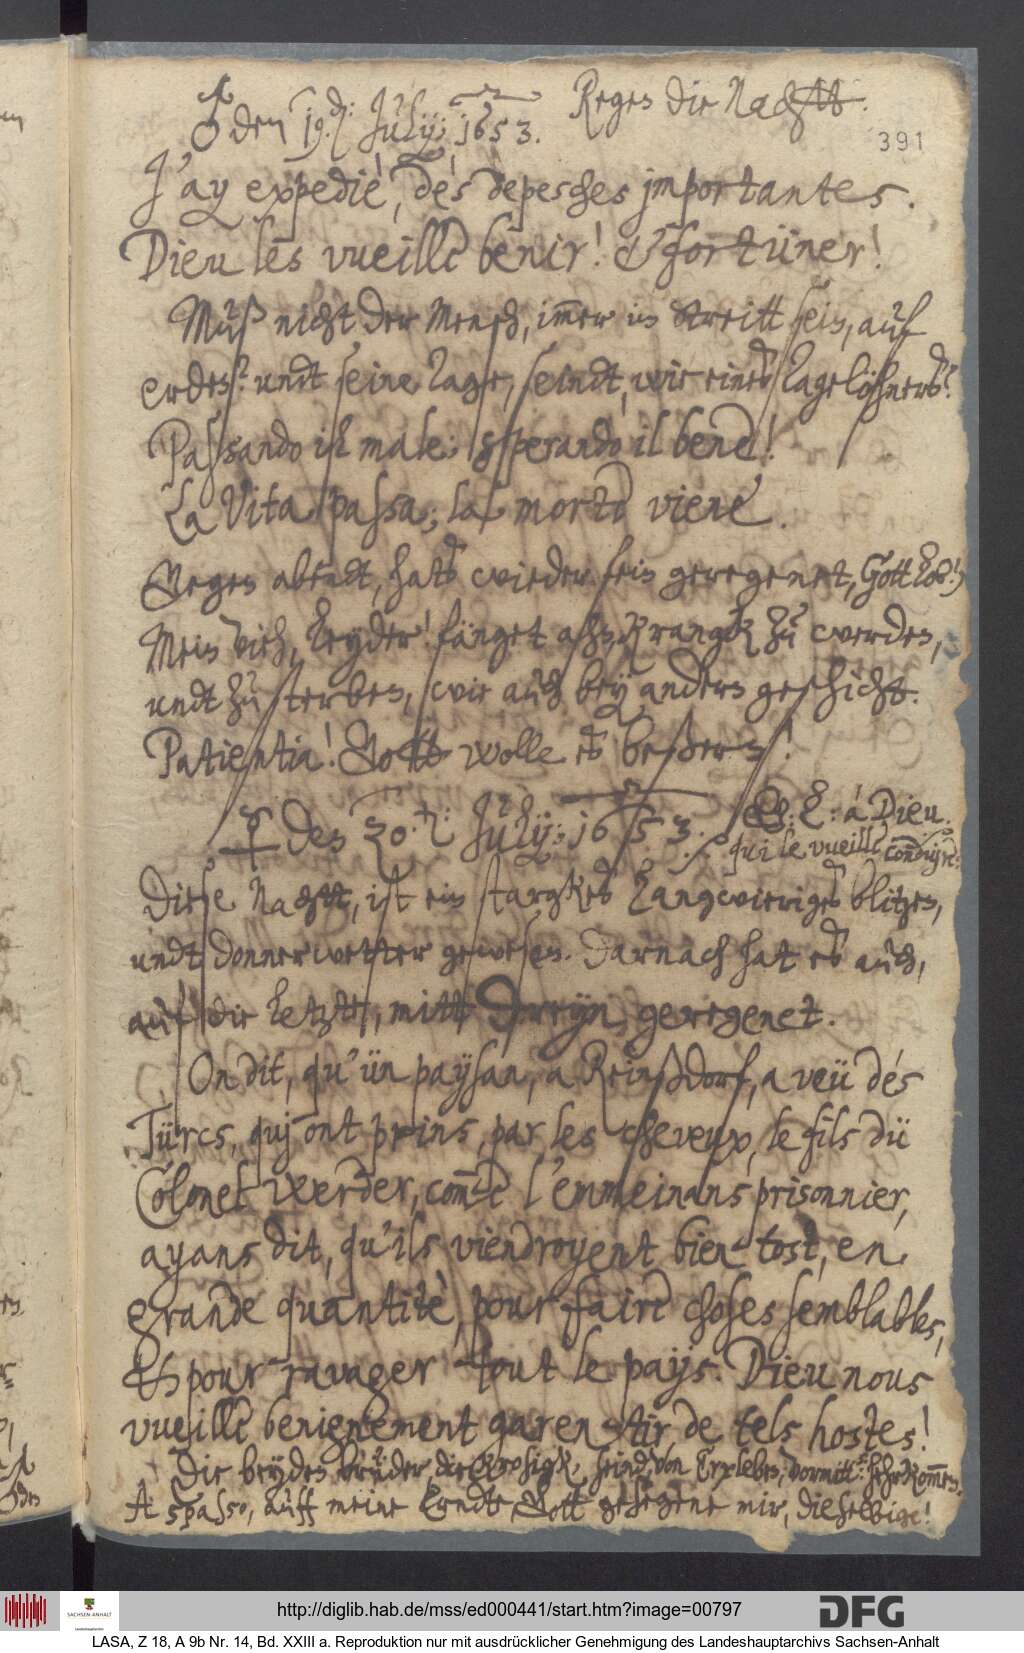 ♂ den 19. Julÿ: 1653. Regen die Nachtt.
391
J'ay expedié, dés depesches jmportantes.
Dieu les vueille benir! & fortüner!
Muß nicht der Mensch, im̅er in streitt sein, auf
erden? undt seine Tage, seindt, wie eines Tagelöhners?
Passando il male; sperando il bene!
La Vita passa; la morte viene.
Gegen abendt, hats wieder fein geregenet, Gott lob!
Mein vieh, leyder! fänget an, Krangk zu werden,
undt zu sterben, wie auch beÿ andern geschicht.
Patientia! Gott wolle es beßern!
☿ den 20. Julÿ: 1653. á Dieu.
qui le vueille conduyre:
Diese Nachtt, ist ein starckes langwieriges blitzen,
undt donnerwetter gewesen. Darnach hat es auch,
auf die letzte, mitt Freÿn, geregenet.
On dit, qu'ün paÿsan, a Reinßdorf, a veü dés
Türcs, quj ont prins, par les cheveux, le fils dü
Colonel Werder, com̅e l'emmeinans prisonnier,
ayans dit, qu'ils viendroyent bien tost, en
grande quantité, pour faire choses semblables,
& pour ravager tout le paÿs. Dieu nous
vueille benignement garentir de tels hostes!
Die beÿden brüder, die Krosigk, seind, von Erxleben, vormitt: hehrkom̅en.
A spasso, auff meine Erndte, Gott gesegene mir, dieselbige!
http://diglib.hab.de/mss/ed000441/start.htm?image=00797
SACHSEN-ANHALT
DFG
LASA, Z 18, A 9b Nr. 14, Bd. XXIII a. Reproduktion nur mit ausdrücklicher Genehmigung des Landeshauptarchivs Sachsen-Anhalt